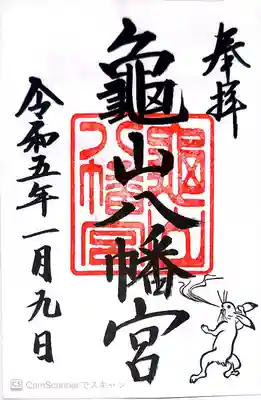 奉拝
龜山八幡宮
龜山八幡宮
令和五年一月九日
CS CamScannerでスキャン